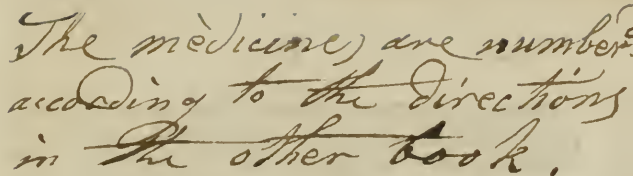 The medicines are number^d
according to the directions
in the other book.